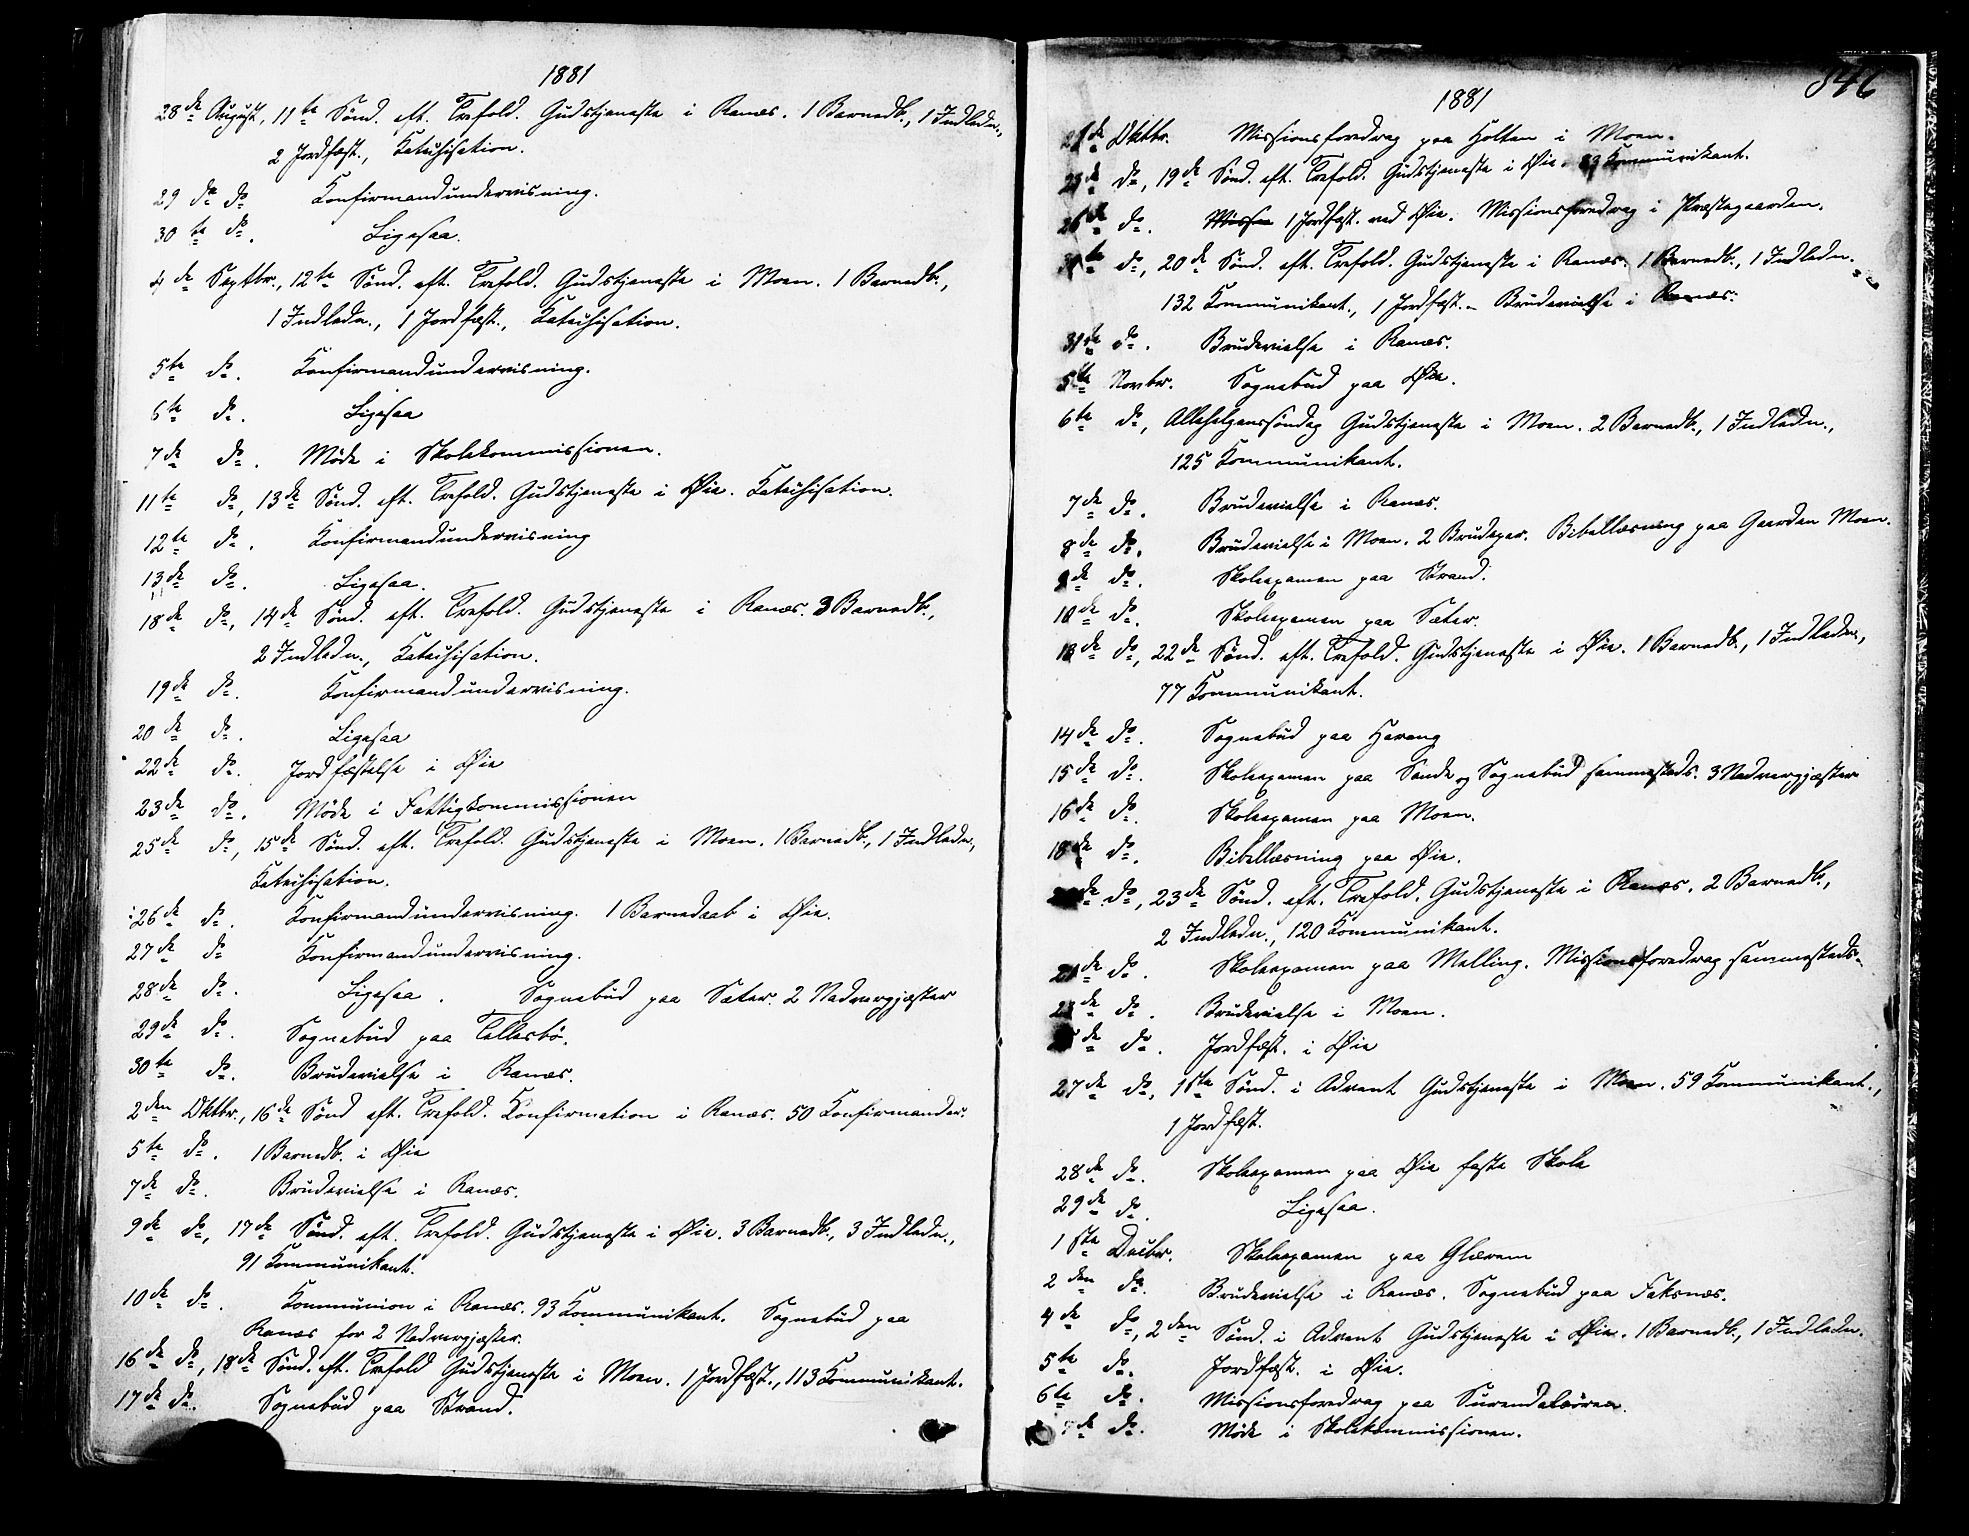 1881
28de August, 11te Sönd. eft. Trefold. Gudstjeneste i Ranæs. 1 Barnedb., 1 Indledn.,
2 Jordfæst., Katechisation.
29 de do Konfirmandundervisning.
30te do. Ligesaa.
4de Septbr., 12te Sönd. eft. Trefold. Gudstjeneste i Moen. 1 Barnedb.,
1 Indledn., 1 Jordfæst., Katechisation.
5te do. Konfirmandundervisning.
6te do. Ligesaa
7de do. Möde i Skolekommissionen.
11te do, 13de Sönd. eft. Trefold. Gudstjeneste i Øie. Katechisation.
12te do. Konfirmandundervisning
13de do. Ligesaa.
18de do, 14de Sönd. eft. Trefold. Gudstjeneste i Ranæs. 3 Barnedb.,
2 Indledn., Katechisation.
19de do. Konfirmandundervisning.
20de do. Ligesaa
22de do. Jordfæstelse i Øie
23de do. Möde i Fattigkommissionen
25de do, 15de Sönd. eft. Trefold. Gudstjeneste i Moen. 1 Barnedb., 1 Indledn.,
Katechisation.
26de do. Konfirmandundervisning. 1 Barnedaab i Øie.
27de do Konfirmandundervisning.
28de do. Ligesaa. Sognebud paa Sæter. 2 Nadvergjæster
29de do. Sognebud paa Tellesbö.
30te do. Brudevielse i Ranæs.
2den Oktbr., 16de Sönd eft. Trefold. Konfirmation i Ranæs. 50 Konfirmander.
5te do. 1 Barnedb. i Øie
7de do. Brudevielse i Ranæs.
9de do, 17de Sönd. eft. Trefold. Gudstjeneste i Øie. 3 Barnedb., 3 Indledn.,
91 Kommunikant.
10de do. Kommunion i Ranæs. 93 Kommunikant. Sognebud paa
Ranæs for 2 Nadvergjæster.
16de do, 18de Sönd. eft. Trefold Gudstjeneste i Moen. 1 Jordfæst., 113 Kommunikant.
17de do. Sognebud paa Strand.
846
1881
Oktbr. Missionsforedrag paa Holten i Moen.
23de do, 19de Sönd. eft. Trefold. Gudstjeneste i Øie. Kommunikant.
26de do. Mission 1 Jordfæst. ved Øie. Missionsforedrag i Præstegaarden.
30te do, 20de Sönd. eft. Trefold. Gudstjeneste i Ranæs. 1 Barnedb., 1 Indledn.
132 Kommunikant., 1 Jordfæst. – Brudevielse i Ranæs.
31te do. Brudevielse i Ranæs.
5te Novbr. Sognebud paa Øie.
6te do, Allehelgenssöndag Gudstjeneste i Moen. 2 Barnedb., 1 Indledn.,
125 Kommunikant.
7de do. Brudevielse i Ranæs.
8de do. Brudevielse i Moen. 2 Brudepar. Bibellæsning paa Gaarden Moen.
9de do. Skoleexamen paa Strand.
10de do. Skoleexamen paa Sæter.
13de do, 22de Sönd. eft. Trefold. Gudstjeneste i Øie. 1 Barnedb., 1 Indledn.,
77 Kommunikant.
14de do. Sognebud paa Harang
15de do. Skoleexamen paa Sande og Sognebud sammesteds. 3 Nadvergjæster
16de do. Skoleexamen paa Moen.
18de do. Bibellæsning paa Øie.
20de do, 23de Sönd. eft. Trefold. Gudstjeneste i Ranæs. 2 Barnedb.,
2 Indledn., 120 Kommunikant.
21de do. Skoleexamen paa Melling. Missionsforedrag sammesteds.
do. Brudevielse i Moen.
do. Jordfæst. i Øie
27de do, 1ste Sönd. i Advent Gudstjeneste i Moen. 59 Kommunikant.,
1 Jordfæst.
28de do. Skoleexamen paa Øie faste Skole
29de do. Ligesaa.
1ste Decbr. Skoleexamen paa Glærem
2den do. Brudevielse i Ranæs. Sognebud paa Faksnæs.
4de do, 2den Sönd. i Advent Gudstjeneste i Øie. 1 Barnedb., 1 Indledn.
5te do. Jordfæst. i Øie.
6te do. Missionsforedrag paa Surendalsören.
7de do. Möde i Skolekommissionen.